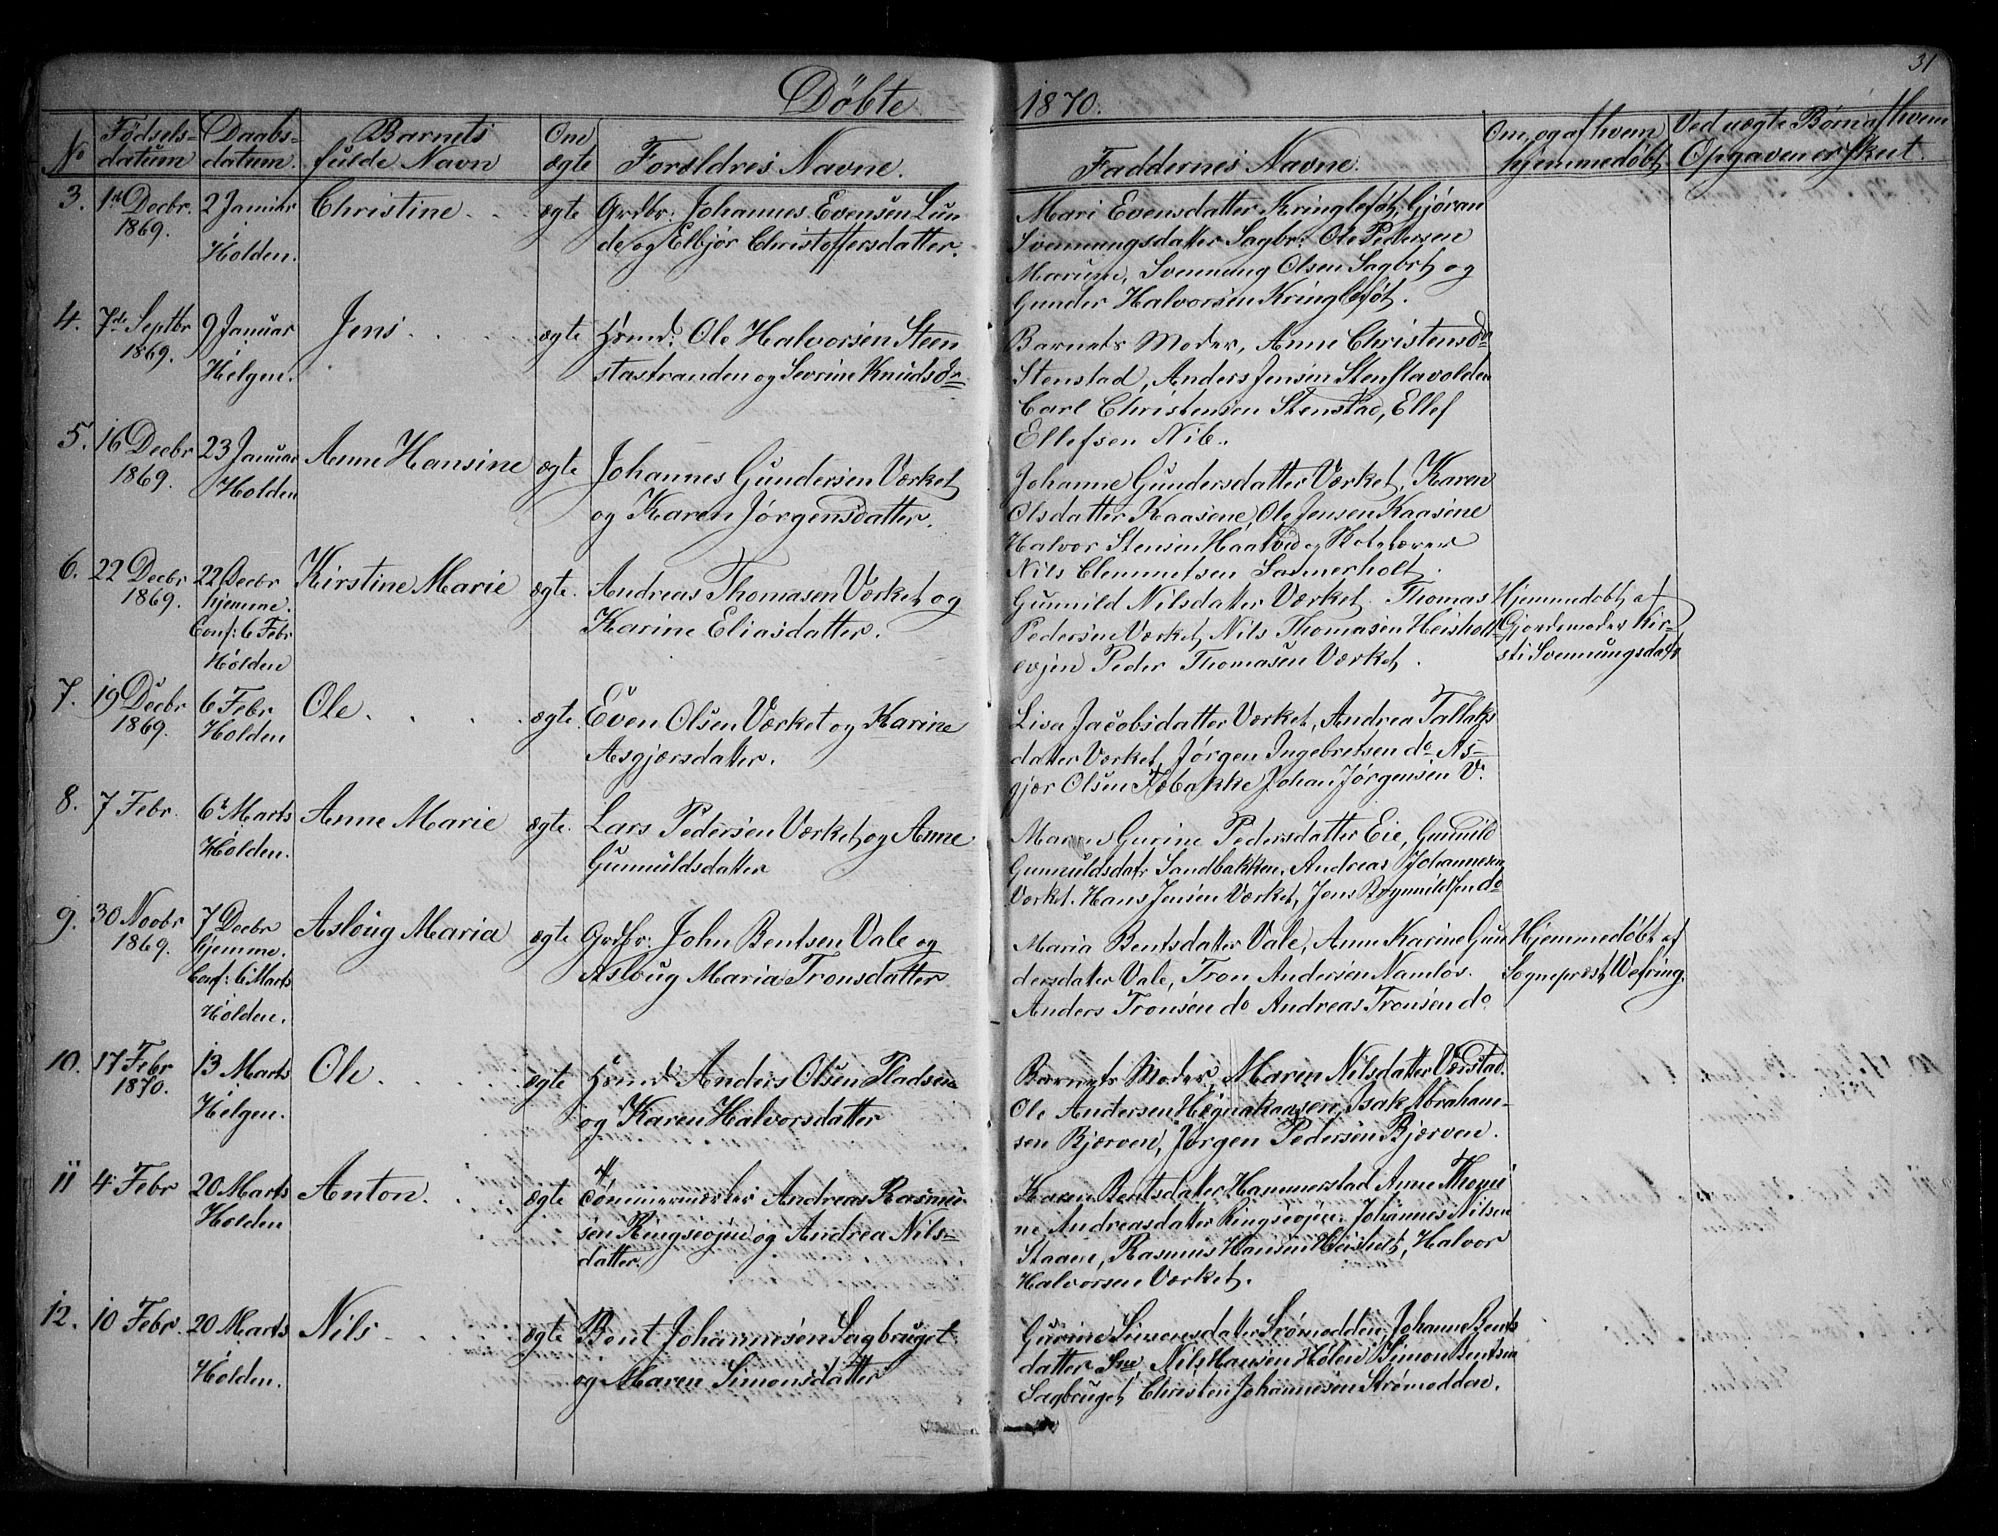 31
Døbte 1870.
No
Fødsels-
datum
Daabs-
datum.
Barnets
fulde Navn
Om
ægte
Forældres Navne.
Faddernes Navne.
Om, og af hvem
hjemmedøbt
Ved uægte Børn af hvem
Opgaven er skeet.
3. 1ste Decbr.
1869.
2 Januar
Holden.
Christine
ægte
Grdbr. Johannes Evensen Lun-
de og Elbjør Christoffersdatter.
Mari Evensdatter Kringlefót, Gjøran
Svennungsdatter Sagbr: Ole Pedersen
Mærum, Svennung Olsen Sagbrt og
Gunder Halvorsen Kringlefót.
4. 7de Septbr
1869.
9 Januar
Helgen.
Jens
ægte
Hrmd: Ole Halvorsen Steen
stastranden og Sevrine Knudsdr
Barnets Moder, Anne Christensdr
Stenstad, Anders Jensen Stenstavolden
Carl Christensen Stenstad, Ellef
Ellefsen Nib.
5. 16 Decbr
1869.
23 Januar
Holden
Anne Hansine
ægte
Johannes Gundersen Værket
og Karen Jørgensdatter.
Johanne Gundersdatter Værket, Karen
Olsdatter Kaasene, Ole Jensen Kaasene
Halvor Stensen og
Nils Clemmetsen
6. 22 Decbr
1869.
22 Decbr
hjemme.
Conf: 6 Febr
Holden
Kirstine Marie
ægte.
Andreas Thomasen Værket og
Karine Eliasdatter.
Gunnild Nilsdatter Værket. Thomas
Pedersen Værket, Nils Thomasen Heisholt
evjen Peder Thomasen Værket.
Hjemmedøbt af
Gjordemoder Kir-
sti Svennungsdatr
7. 19 Decbr
1869.
6 Febr
Holden
Ole
ægte.
Even Olsen Værket og Karine
Asgjærsdatter.
Lisa Jacobsdatter Værket, Andrea Tallaks
datter Værket, Jørgen Ingebretsen do As-
gjær Olsen Johan Jørgensen V.
8. 7 Febr.
6te Marts
Holden.
Anne Marie
ægte.
Lars Pedersen Værket og Anne
Gunnuldsdatter
Maren Gurine Pedersdatter Eie, Gunnild
Gunnuldsdatr Sandbakken, Andreas Johannesen
Værket. Hans Jensen Værket, Jens do
9. 30 Novbr
1869.
7 Decbr
hjemme.
Conf: 6 Marts
Holden.
Aslaug Maria
ægte
Grdbr: John Bentsen Vale og
Aslaug Maria Tronsdatter
Maria Bentsdatter Vale, Anne Karine Gun
dersdatter Vale, Tron Andersen Namløs.
Anders Tronsen do Andreas Tronsen do
Hjemmedøbt af
Sognepræst Wefring.
10. 17 Febr
1870.
13 Marts
Helgen.
Ole
ægte
Hrmd Anders Olsen Pladsen
og Karen Halvorsdatter
Barnets Moder, Maren Nilsdatter Værstad.
Ole Andersen Isak Abraham-
sen Bjærven, Jørgen Pedersen Bjærven.
11 4 Febr
20 Marts
Holden
Anton.
ægte
Tømmermester Andreas Rasmus-
sen Ringsevjen og Andrea Nils-
datter.
Karen Bentsdatter Hammerstad Anne Thomi
ne Andreasdatter Ringsevjen. Johannes Nilsen
Staane, Rasmus Hansen Heisholt, Halvor
Halvorsen Værket.
12. 10 Febr.
20 Marts
Holden.
Nils
ægte
Bent Johannesen Sagbruget
og Maren Simonsdatter
Gurine Simonsdatter Strømodden, Johanne Bents
datter Nils Hansen Holen Simon Bentsen
Sagbruget, Christen Johannesen Strømodden.